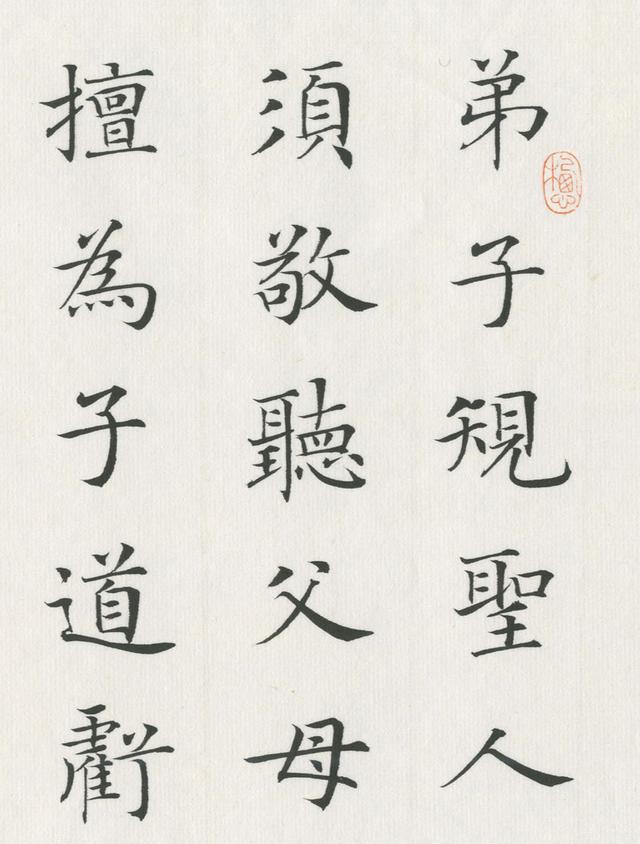 弟子規聖人
須敬聽父母
擅為子道虧